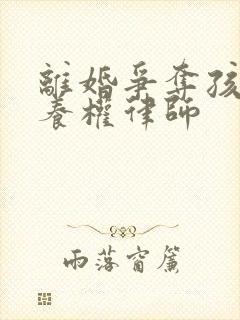 離婚爭奪孩
養權律師
雨落窗簾